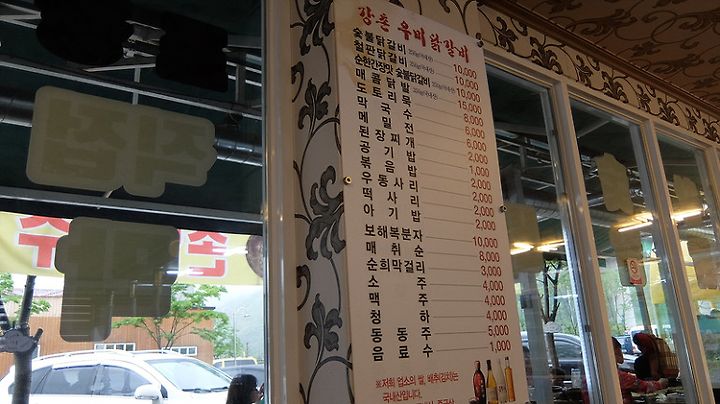 강촌 우미닭갈비
숯불닭갈비 250g(국내산) 10,000
철판닭갈비 250g(국내산) 10,000
순한간장맛 숯불닭갈비 250g(국내산) 10,000
매콤닭발 15,000
도토리묵 8,000
막국수 6,000
메밀전 6,000
된장찌개 6,000
공기밥 1,000
볶음밥 2,000
우동사리 2,000
떡사리 2,000
아기밥 2,000
보해복분자 10,000
매취순 8,000
순희막걸리 3,000
소주 4,000
맥주 4,000
청하 4,000
동동주 5,000
음료수 1,000
※저희 업소의 쌀, 배추(김치)는
국내산입니다.